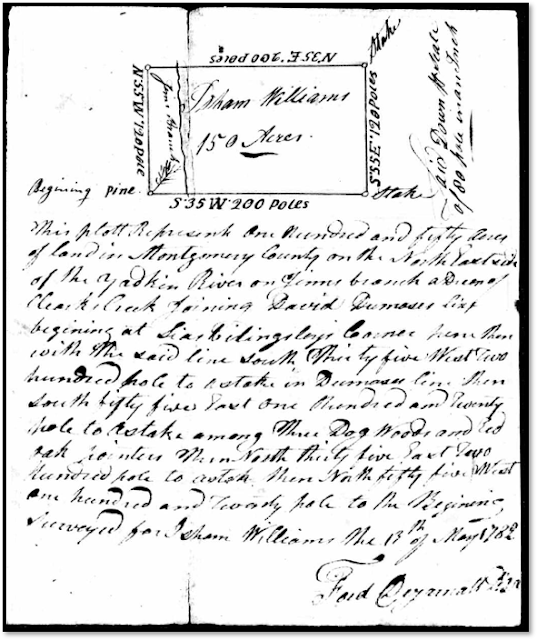 N 35 E. 200 Poles
Stake
N 55 W 120 Pole
Isham Williams
150 Acres.
S 55 E. 120 Poles
Laid Down
of 80 pole in an Inch
Begining Pine
Stake
S. 35 W. 200 Poles
This plott Represents One Hundred and fifty Acres
of land in Montgomery County on the North East side
of the Yadkin River on branch a
Creek Joining David Dumases line
begining at Corner pine then
with the said line South Thirty five West Two
hundred pole to a stake in Dumases line then
South fifty five East One Hundred and Twenty
pole to a stake among Three Dog Woods and Red
oak pointers Then North thirty five East Two
hundred pole to a then North fifty five West
one hundred and Twenty pole to the Begining
Surveyed for Isham Williams the 13th of May 1782